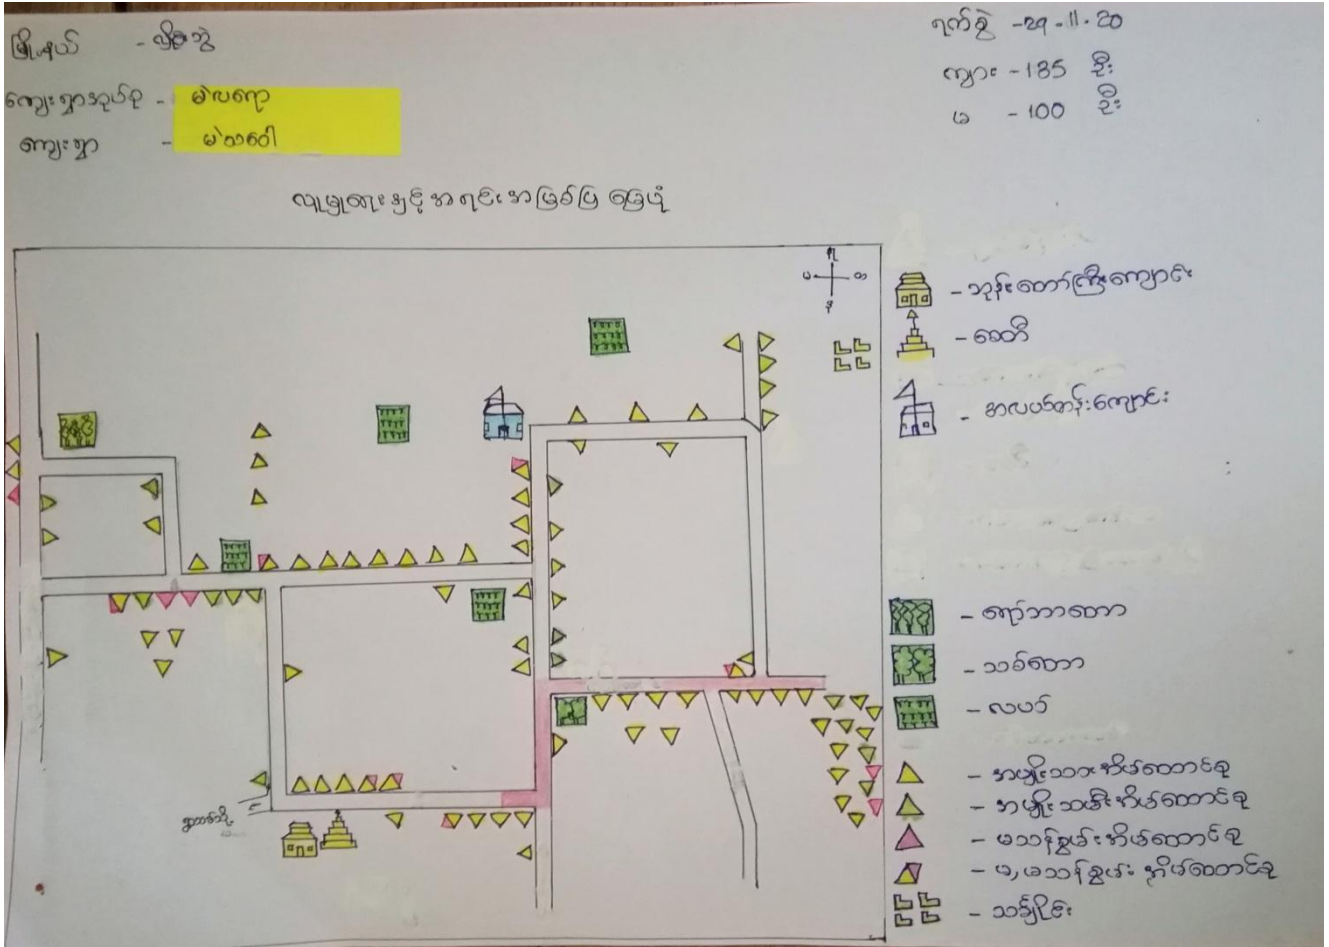 မြို့နယ် - လှိုင်းဘွဲ
ကျေးရွာအုပ်စု - မဲလရော
ကျေးရွာ - မဲသဝေါ
ရက်စွဲ - 29 - 11 - 20
ကျား - 135 ဦး
မ - 100 ဦး
လူမှုရေးနှင့် အရင်းအမြစ်ပြ မြေပုံ
- ဘုန်းတော်ကြီးကျောင်း
- စေတီ
- အလယ်တန်းကျောင်း
- ရော်ဘာတော
- သစ်တော
- လယ်
- အမျိုးသားအိမ်ထောင်စု
- အမျိုးသမီးအိမ်ထောင်စု
- မသန်စွမ်းအိမ်ထောင်စု
- မ,မသန်စွမ်း အိမ်ထောင်စု
- သင်္ချိုင်း